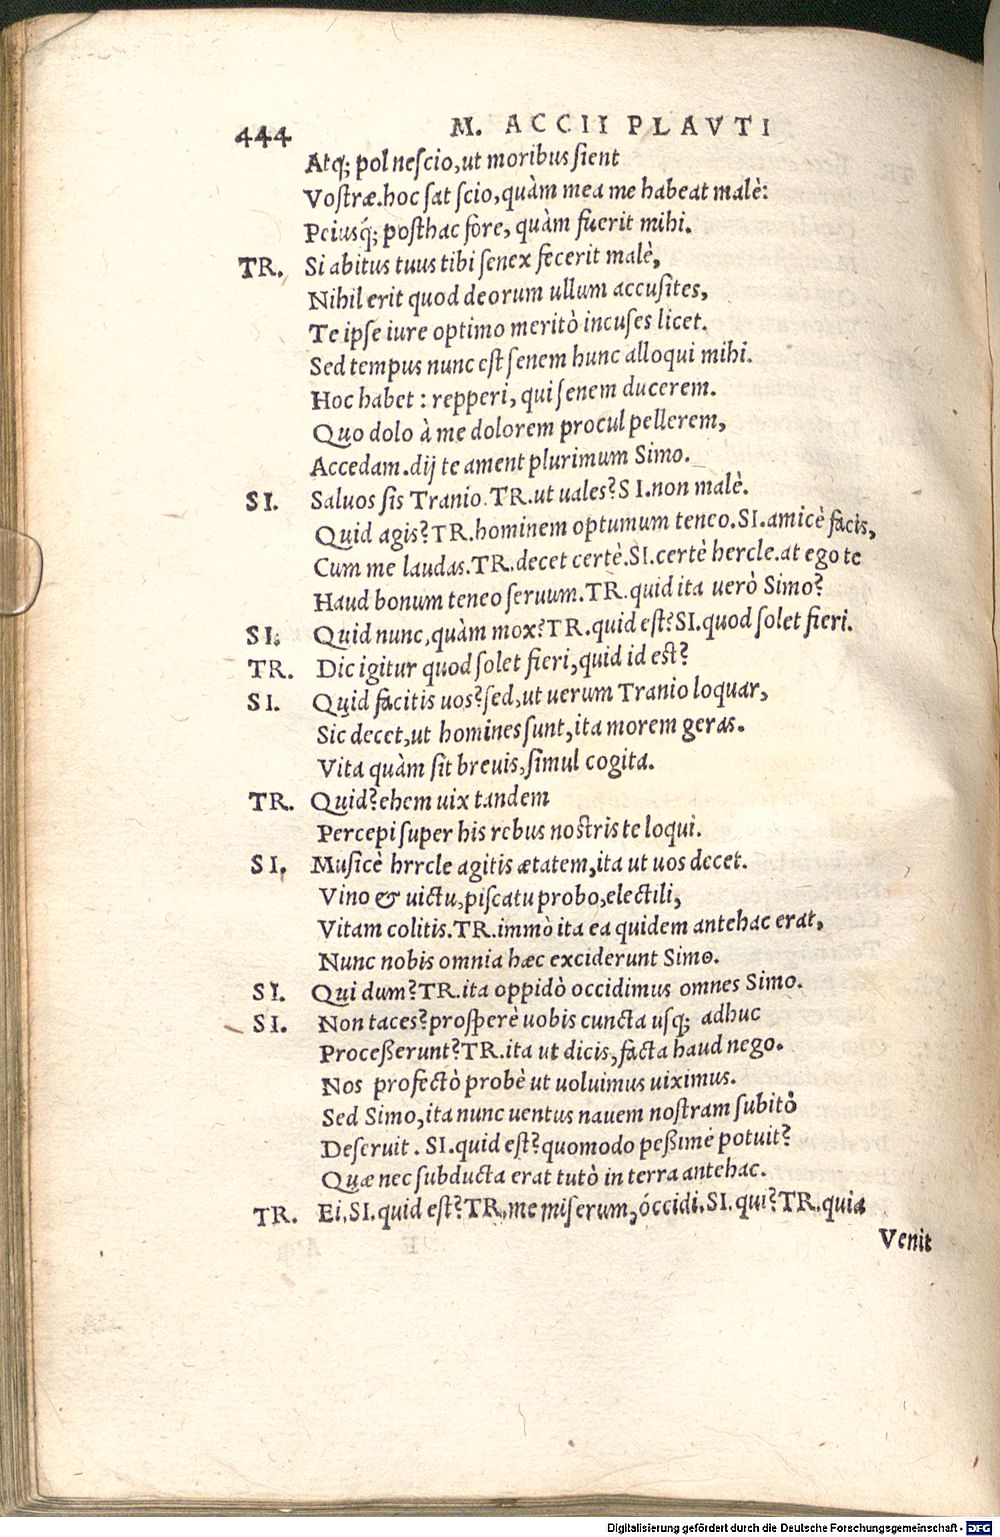 444 M. ACCII PLAVTI
Atq; pol nescio, ut moribus sient
Vostræ. hoc sat scio, quàm mea me habeat malè:
Peiusq́; posthac fore, quàm fuerit mihi.
TR. Si abitus tuus tibi senex fecerit malè,
Nihil erit quod deorum ullum accusites,
Te ipse iure optimo meritò incuses licet.
Sed tempus nunc est senem hunc alloqui mihi.
Hoc habet: repperi, qui senem ducerem.
Quo dolo à me dolorem procul pellerem,
Accedam. dij te ament plurimum Simo.
SI. Saluos sis Tranio. TR. ut uales? SI. non malè.
Quid agis? TR. hominem optumum teneo. SI. amicè facis,
Cum me laudas. TR. decet certè. SI. certè hercle. at ego te
Haud bonum teneo seruum. TR. quid ita uerò Simo?
SI. Quid nunc, quàm mox? TR. quid est? SI. quod solet fieri.
TR. Dic igitur quod solet fieri, quid id est?
SI. Quid facitis uos? sed, ut uerum Tranio loquar,
Sic decet, ut homines sunt, ita morem geras.
Vita quàm sit breuis, simul cogita.
TR. Quid? ehem uix tandem
Percepi super his rebus nostris te loqui.
SI. Musicè hrrcle agitis ætatem, ita ut uos decet.
Vino & uictu, piscatu probo, electili,
Vitam colitis. TR. immò ita ea quidem antehac erat,
Nunc nobis omnia hæc exciderunt Simo.
SI. Qui dum? TR. ita oppidò occidimus omnes Simo.
SI. Non taces? prosperè uobis cuncta usq; adhuc
Proceßerunt? TR. ita ut dicis, facta haud nego.
Nos profectò probè ut uoluimus uiximus.
Sed Simo, ita nunc uentus nauem nostram subitò
Deseruit. SI. quid est? quomodo peßimè potuit?
Quæ nec subducta erat tutò in terra antehac.
TR. Ei. SI. quid est? TR. me miserum, óccidi. SI. qui? TR. quia
Venit
Digitalisierung gefördert durch die Deutsche Forschungsgemeinschaft - DFG